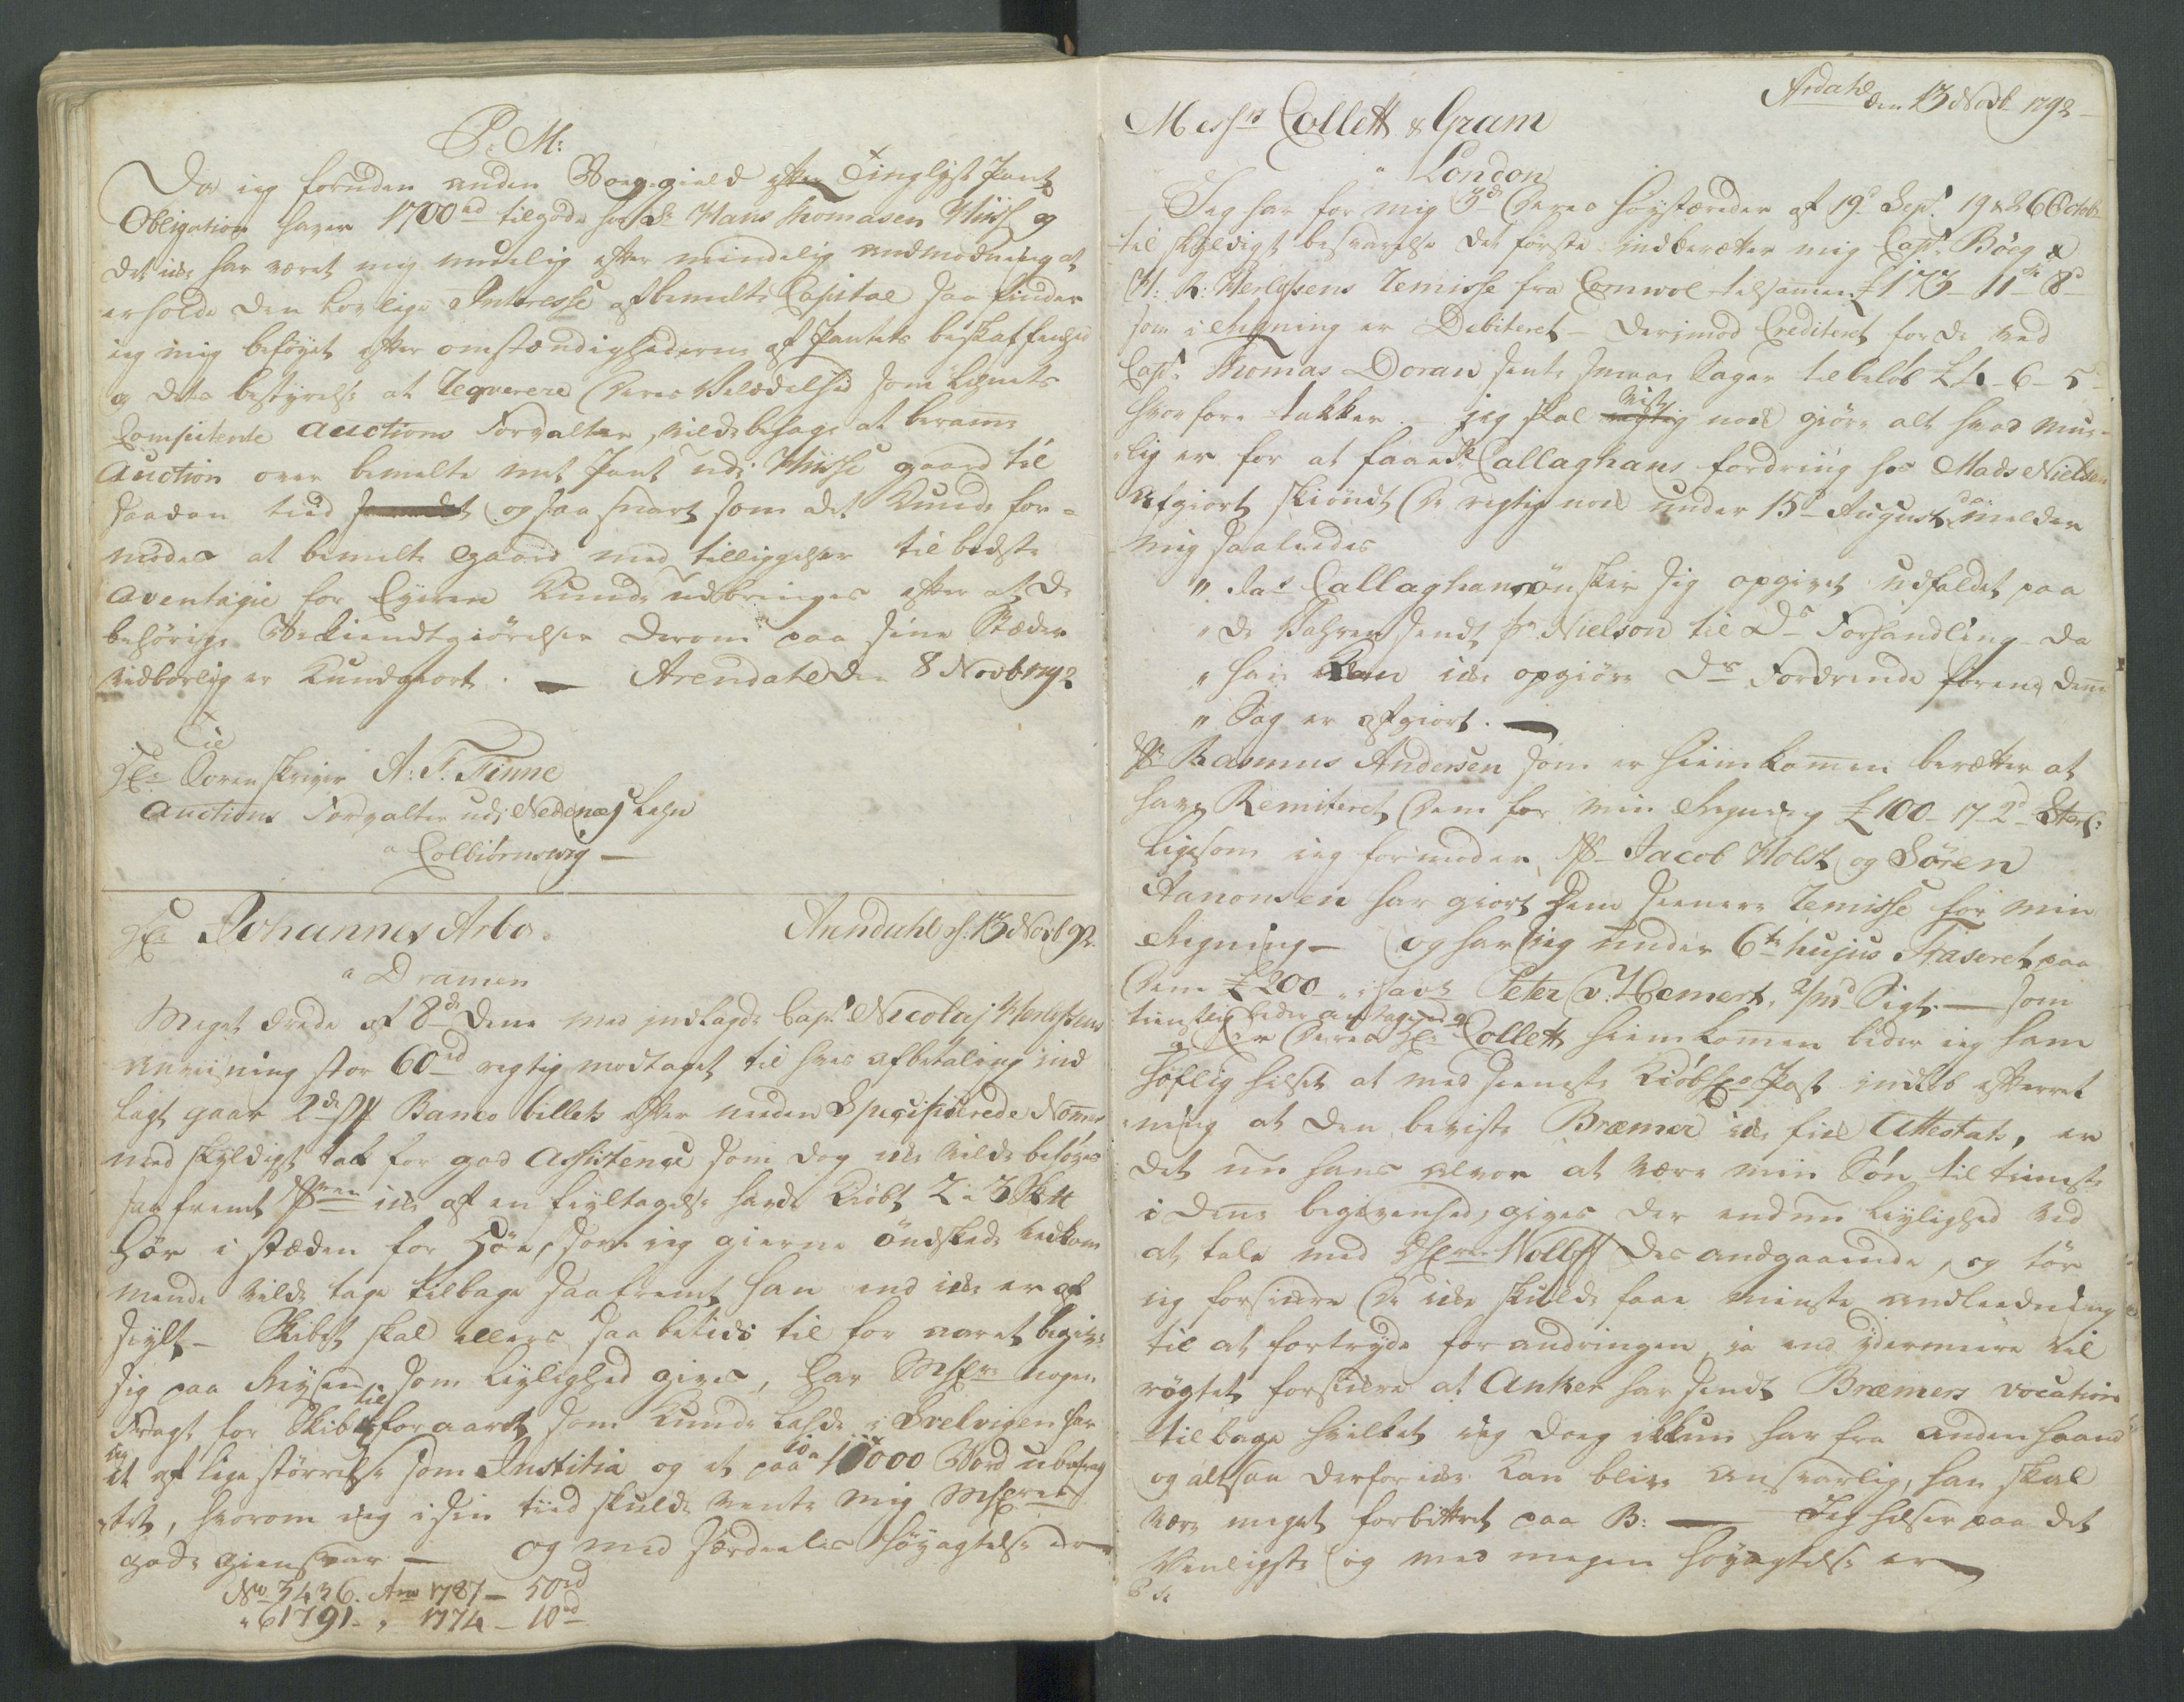 P: M:
Da jeg foruden anden Boeggield efter Tinglyst Pant
Obligation haver 1700 rd tilgode hos Sr Hans Thomasen Hiische og
det icke har været mig muelig efter mindelig anmodning at
erholde den lovlige Interesse af bemelte Capital saa finder
jeg mig beføyet efter omstændighederne af Pantets beskaffenhed
og dets bestyrelse at reqverere Deres Velædelhed som Lehnets
Competente Auctions Forvalter vilde behage at beramme
Auction over bemelte mit Pant udi Hiische gaard til
saadan tiid og saa snart som det kunde for-
modes at bemelte gaard med tilliggelser til bedste
aventagie for Eyeren kunde udbringes efter at de
behørige Bekiendtgiørelser derom paa sine Stæder
vidborlig er kundgiort. — Arendahl den 8 Novb 1792
Til
Hr Sorenskriver A: F. Finne
Auctions Forvalter udi Nedenæs Lehn
a Colbiørnsvig —
Hr Johannes Arbo Arndahl d: 13 Novb 92.
a Dramen
Meget ærede af 8de dene med indlagde Capt Nicolaj Herlofsens
anviisning stor 60 rd rigtig modtaget til hvis afbetaling ind
lagt gaar 2de st Banco billets efter neden Specificerede Nommer
med skyldigst tak for god Assistence som dog icke vilde behøves
saafremt icke af en feyltagelse havde kiøbt 2 a 3 Sk tt
Hør i stæden for Høe, som jeg gierne ønskede vedkom
mende vilde tage tilbage saafremt han end icke er af
seylt — Skibet skal ellers saa betids til for aaret begive
sig paa Reysen, som leylighed gives, har nogen
Fragt for Skib til for aaret som kunde lahde i Svelvigen har
jeg et af lige størrelse som Justitia og et paa 10 a 11000 Bord ubefrag
tet, hvorom jeg i sin tiid skulde vente mig
gode giensvar — og med særdeeles høyagtelse er
No 3436. Ano 1787 — 50 rd
" 61791 — " 1774 — 10 rd
Ardahl den 13 Novb 1792 —
Messrs Collett & Gram
a London
Jeg har for mig 3de Deres høystærede af 19d Sept. 19 & 26 Octob
til skyldigst besvarelse det første indberetter mig Capt. Böeg &
N: R: Herlofsens remisse fra Cornwol tilsamen £ 173 — 11 — 8d
som i Regning er Debiteret — derimod Crediteret for de ved
Capt. Thomas Doran sendte Sager til beløb £ 4 — 6 — 5
hvorfore takker. — jeg skal vist nock giøre alt hvad mue-
lig er for at faae Callaghans fordring hos Mads Nielsen
Afgiort skiøndt De rigtig nock under 15d August melder
mig saaledes
" Jas Callaghan ønsker sig opgivet udfaldet paa
" de Vahrer sendt pr Nielson til Ds Forhandling — da
" han kan icke opgiøre Ds Fordrende førend denne
" Sag er afgiort. —
Rasmus Andersen som er hiemkommen beretter at
have Remiteret Dem for min Regning £ 100 — 17 — 2d Sterl:
ligesom jeg formoder Jacob Holst og Sören
Aanonsen har giort Dem seenere remisse for min
Regning — og har jeg under 6te hujus Traseret paa
Dem £ 200 Peter v: Hemert, 2/md Sigt. — som
tienstlig beder antaget og
er Deres Hr Collett hiemkommen beder jeg ham
høflig hilset at med seeneste Kiøbh Post indløb efterret
ning at den beviste Bræmer icke fick Attestats, er
det nu hans alvor at være min Søn til tieneste
i dene begivenhed, gives der endnu leylighed ved
at tale med Wolff des andgaaende, og tør
jeg forsickre De icke skulde faae minste andledning
til at fortryde forandringen, ja end ydermeere vil
røgtet forsickre at Anker har sendt Bræmers vocation
tilbage hvilket jeg dog ickun har fra anden haand
og altsaa derfor icke kan blive ansvarlig, han skal
være meget forbittret paa B: — Jeg hilser paa det
Venligste og med megen høyagtelse er